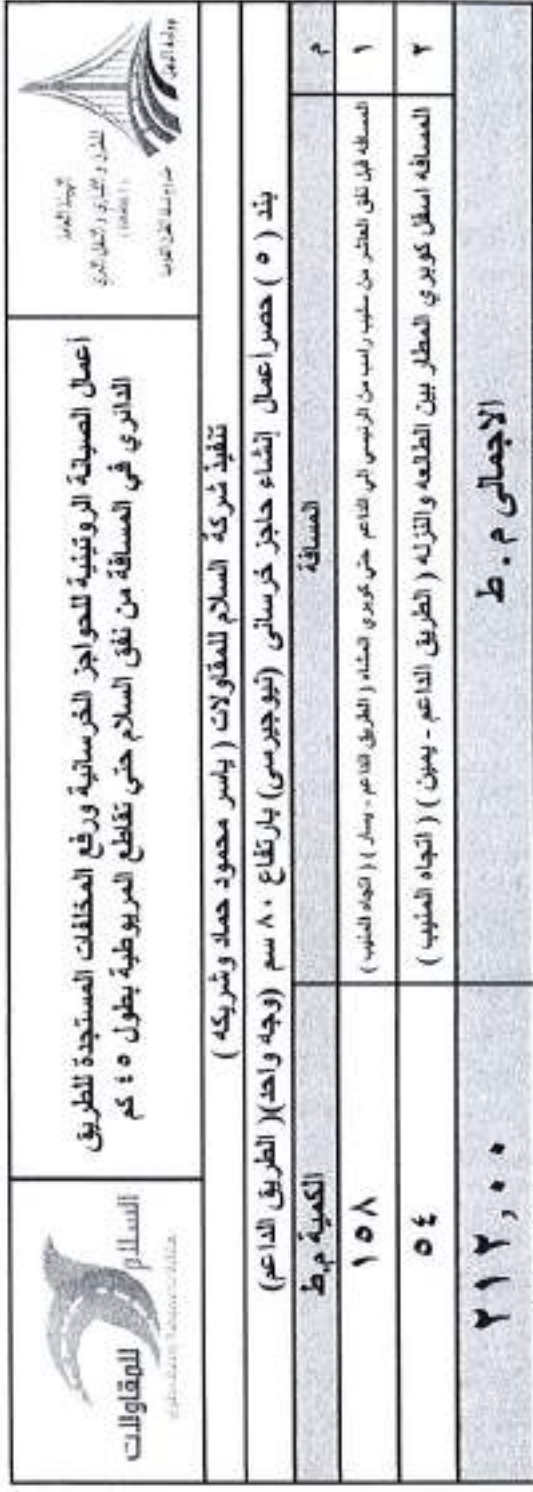 وزارة النقل
الهيئة العامة
للطرق والكباري والنقل البري
أعمال الصيانة الروتينية للحواجز الخرسانية ورفع المخلفات المستجدة للطريق
الدائري في المسافة من نفق السلام حتي تقاطع المريوطية بطول ٤٥ كم
السلام
للمقاولات
تنفيذ شركة السلام للمقاولات ( ياسر محمود حماد وشريكه )
بند ( ٥ ) حصر أعمال إنشاء حاجز خرسانى (نيوجيرسى) بارتفاع ٨٠ سم (وجه واحد)( الطريق الداعم)
م المسافة الكمية م.ط
١ المسافه قبل نفق العاشر من سليب رامب من الرئيسي الي الداعم حتي كوبري المشاه ( الطريق الداعم - يسار ) ( اتجاه المنيب ) ١٥٨
٢ المسافه اسفل كوبري المطار بين الطالعه والنزله ( الطريق الداعم - يمين ) ( اتجاه المنيب ) ٥٤
الاجمالى م . ط ٢١٢,٠٠